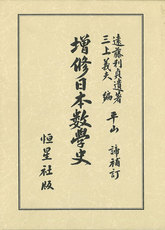 遠藤利貞遺著
三上義夫 編 平山 諦補訂
増修日本数學史
恒星社版